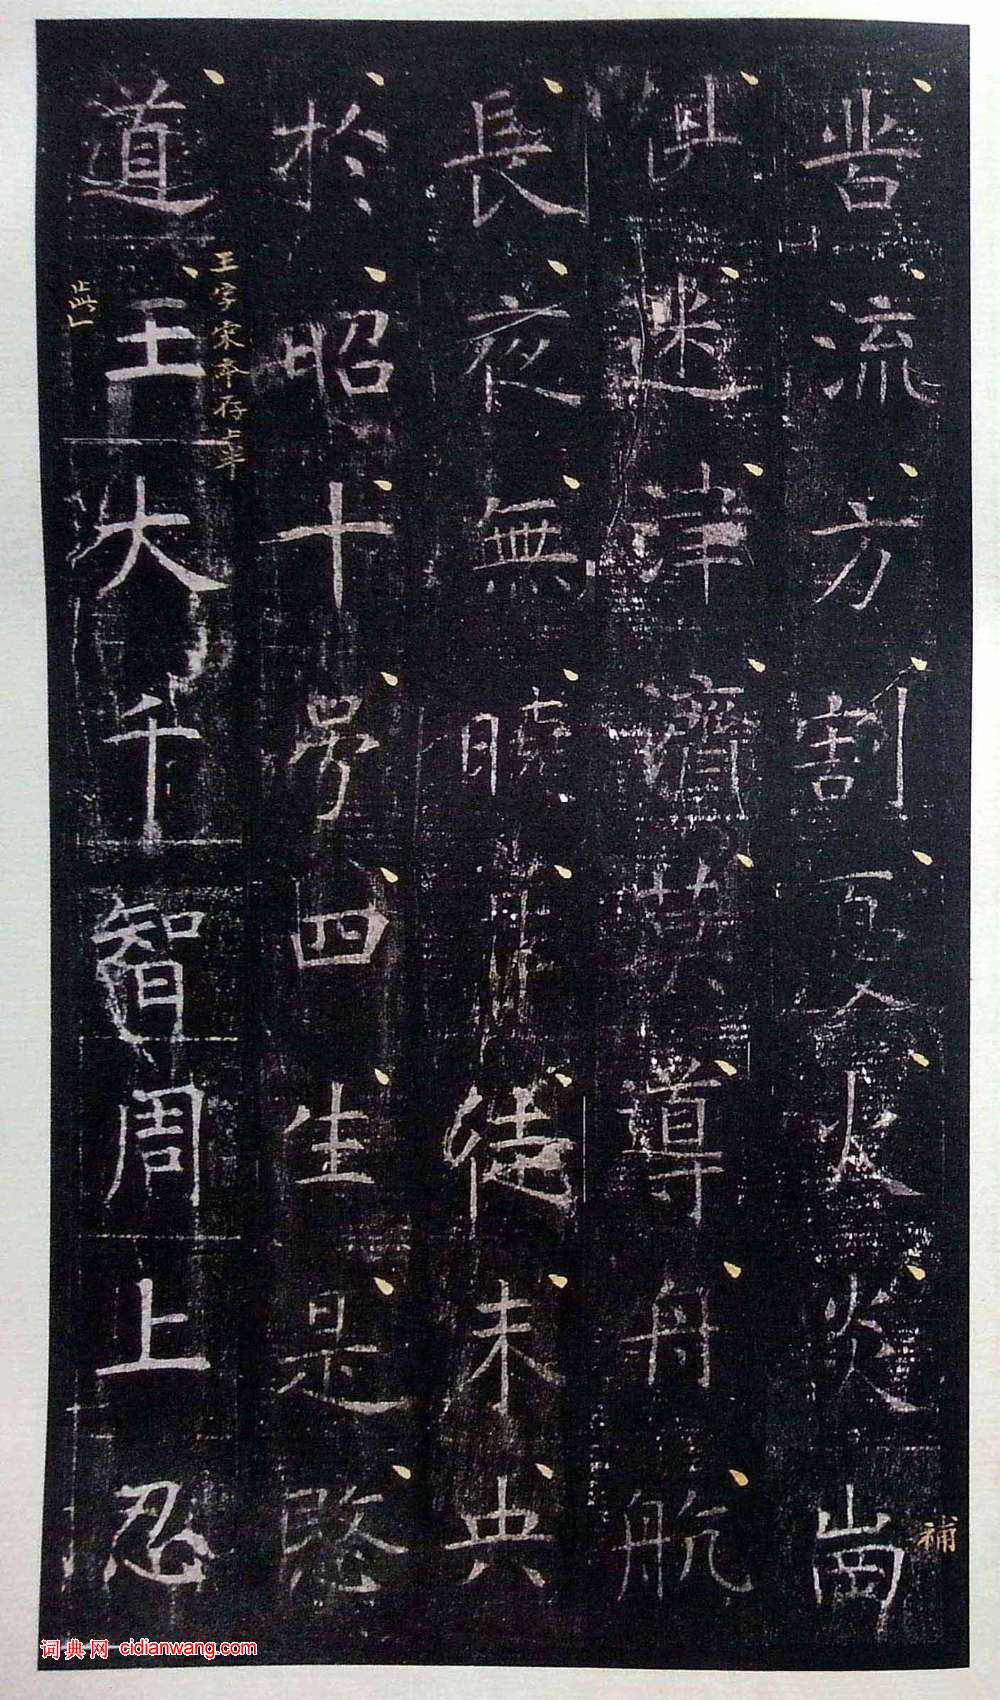 呰流方割亙火炎崗
俱迷津濟莫導舟航
長夜無曉靡徒未央
於昭十号四生是愍
道王大千智周上忍
王字宋本存
補
词典网 cidianwang.com